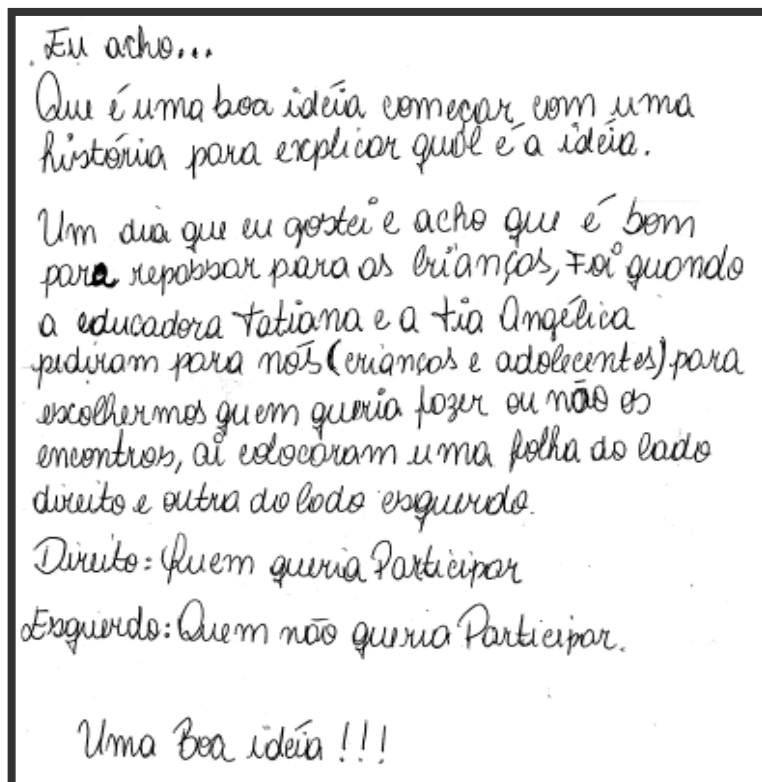 Eu acho...
Que é uma boa idéia começar com uma
história para explicar qual é a idéia.
Um dia que eu gostei e acho que é bom
para repassar para as crianças, Foi quando
a educadora Tatiana e a tia Angélica
pediram para nós (crianças e adolecentes) para
escolhermos quem queria fazer ou não os
encontros, aí colocaram uma folha do lado
direito e outra do lado esquerdo.
Direito: Quem queria Participar
Esquerdo: Quem não queria Participar.
Uma Boa idéia!!!